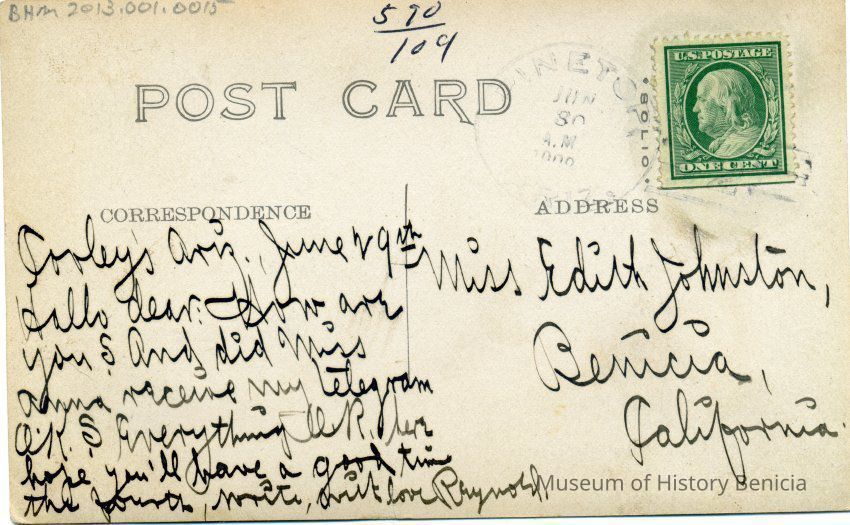 BHM 2013.001.0015
590
109
POST CARD
JUN
30
A.M
SOLIO
U.S. POSTAGE
ONE CENT
CORRESPONDENCE
ADDRESS
Cooley's Ariz., June 29th
Hallo dear. How are
you? And did Miss
Anna receive my telegram
O.K.? Everything O.K. here
hope you'll have a good time
the fourth, write, with love Reynold
Miss Edith Johnston,
Benicia,
California.
Museum of History Benicia